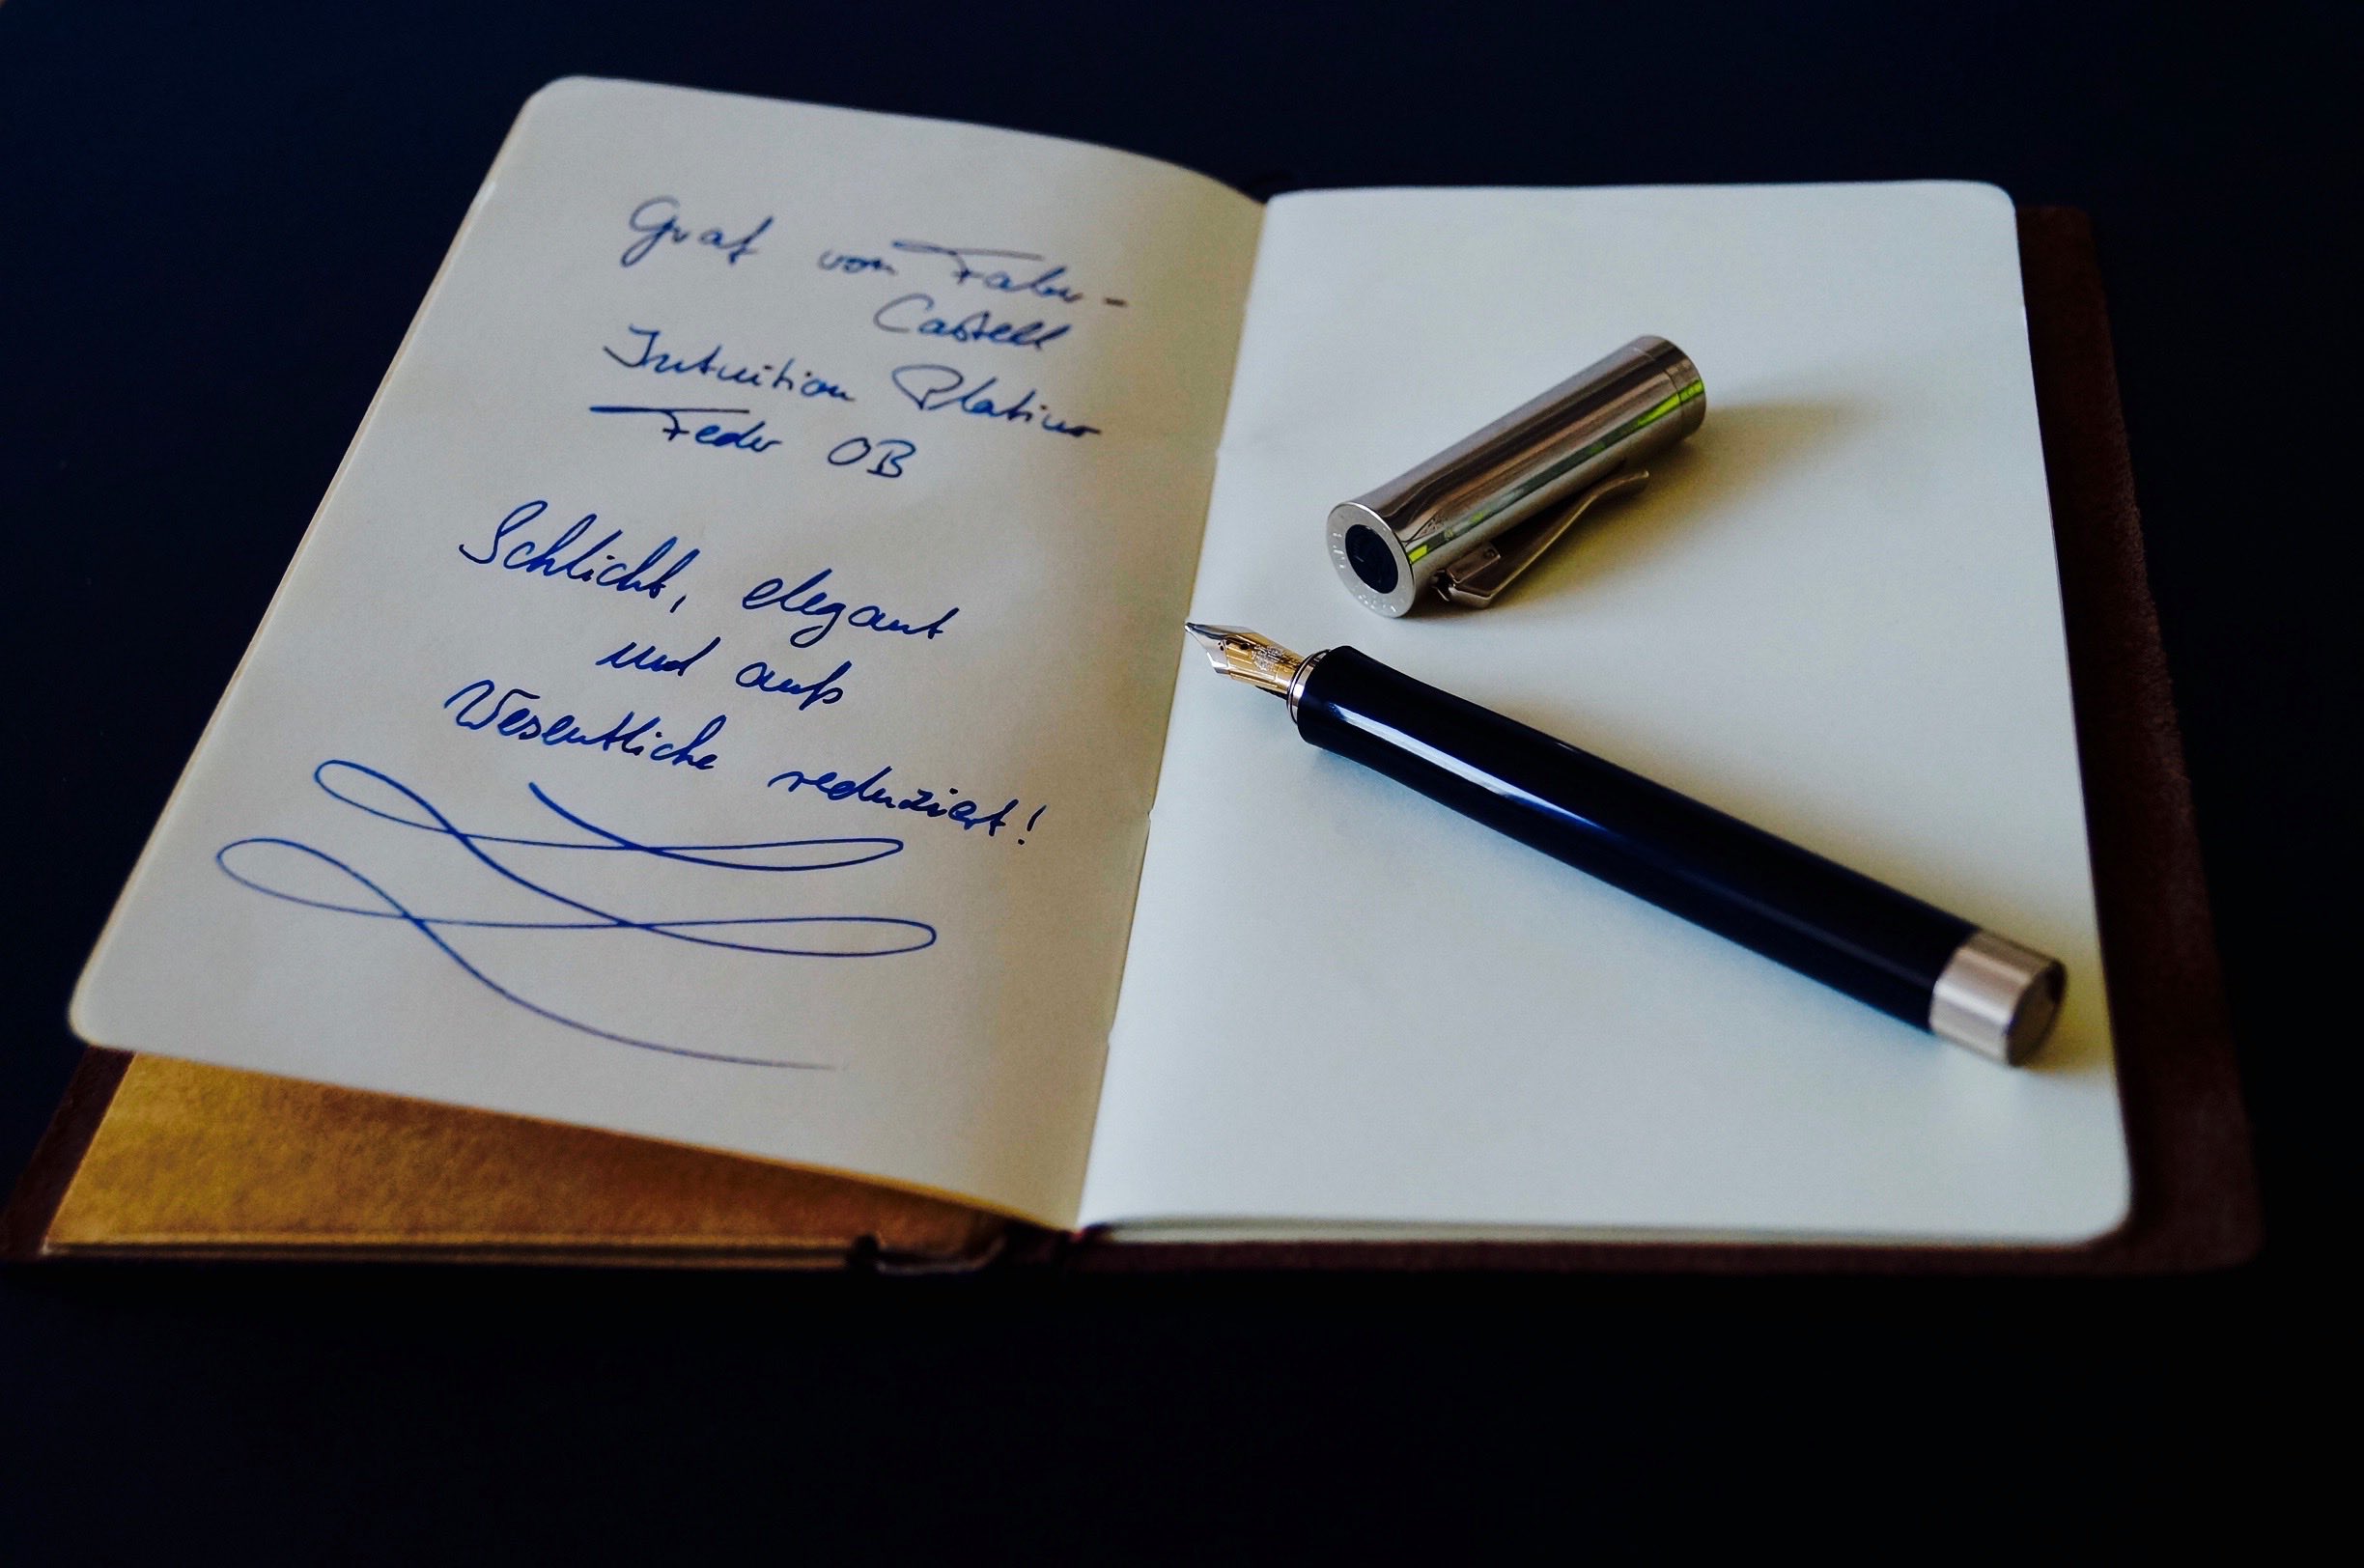 Graf von Faber-
Castell
Intuition Platino
Feder OB
Schlicht, elegant
und aufs
Wesentliche reduziert!